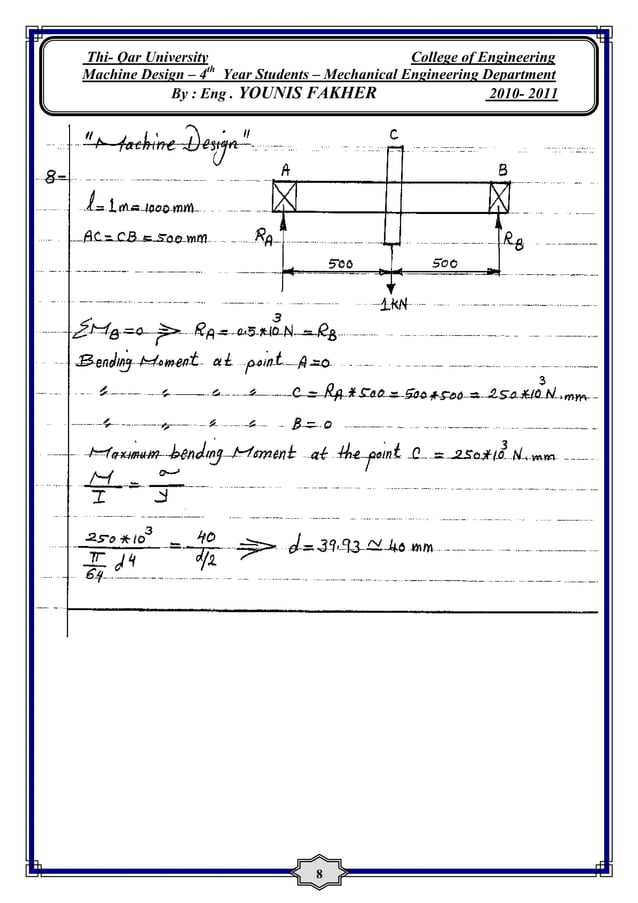 Thi- Qar University College of Engineering
Machine Design – 4th Year Students – Mechanical Engineering Department
By : Eng . YOUNIS FAKHER 2010- 2011
"Machine Design"
C
8-
A B
l = 1 m = 1000 mm
AC = CB = 500 mm
RA RB
500 500
1 KN
ΣMB = 0 ⇒ RA = 0.5*10³ N = RB
Bending Moment at point A = 0
〃 〃 〃 〃 C = RA * 500 = 500*500 = 250*10³ N.mm
〃 〃 〃 〃 B = 0
Maximum bending Moment at the point C = 250*10³ N.mm
M/I = σ/y
250*10³ / (π/64 d⁴) = 40 / (d/2) ⇒ d = 39.93 ≃ 40 mm
8